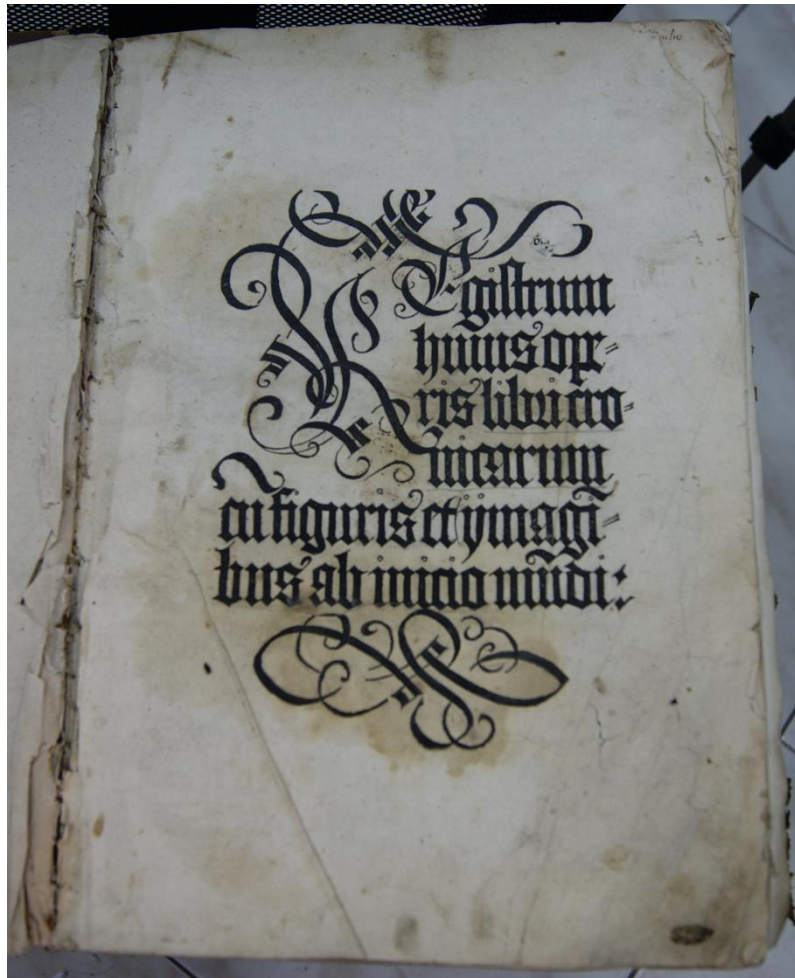 REgistrum
huius ope-
ris libri cro-
nicarum
cū figuris et ymagī-
bus ab inicio mūdi: